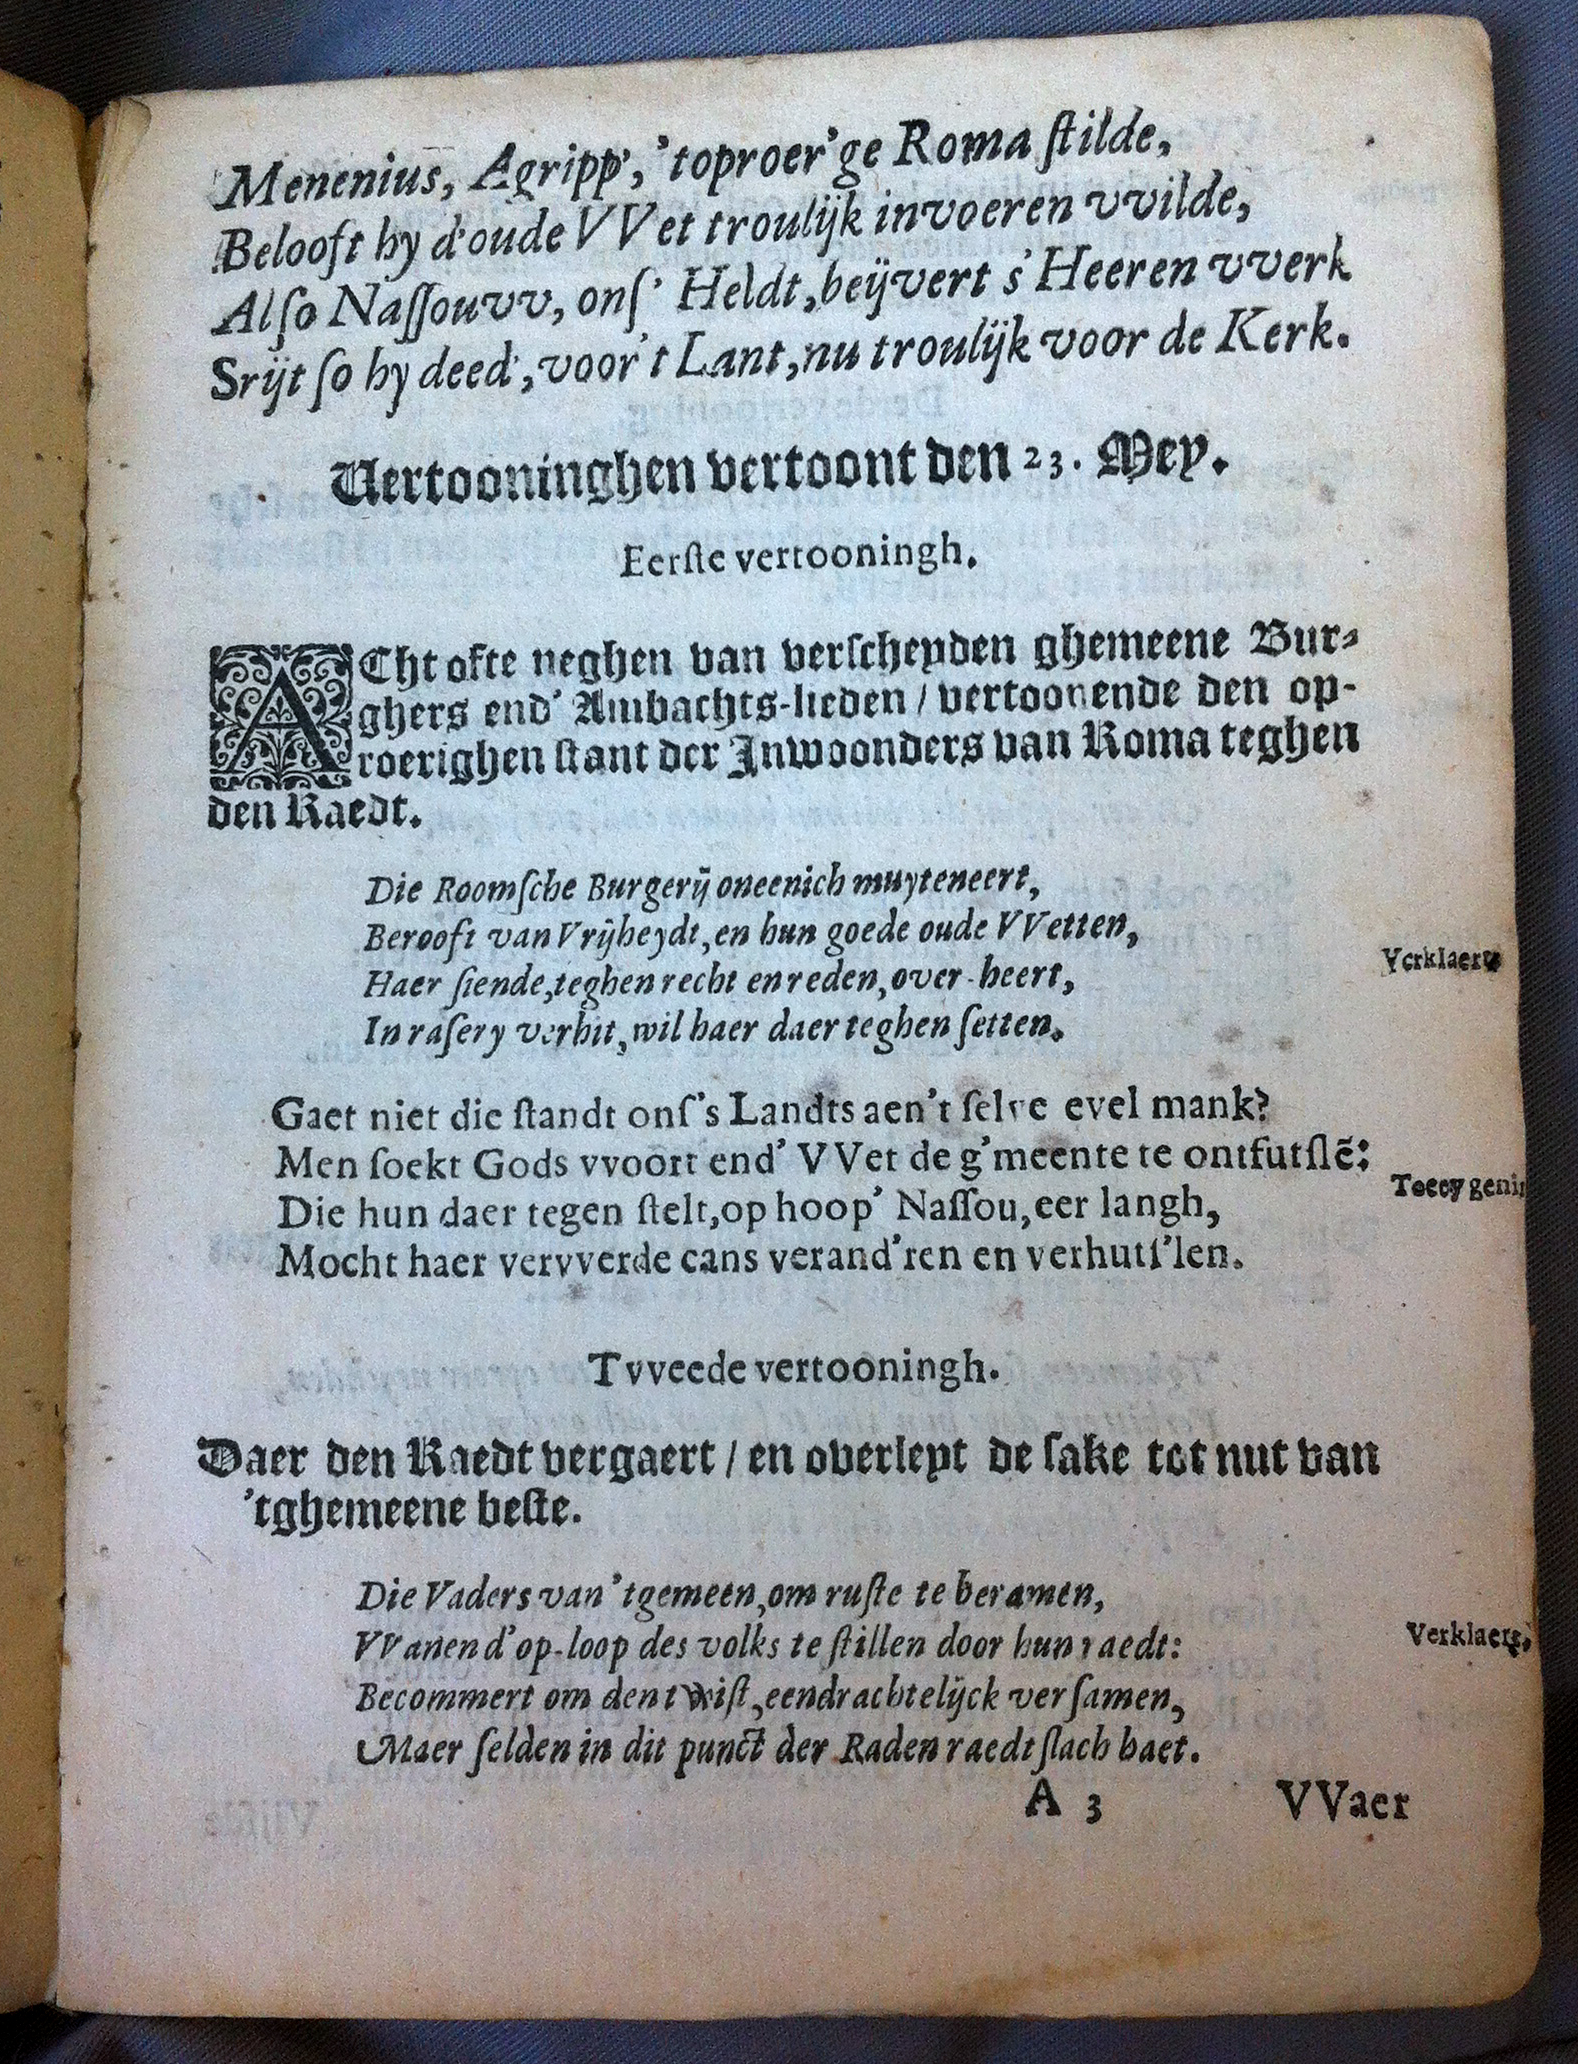 Menenius, Agripp', 'toproer'ge Roma ſtilde,
Belooft hy d'oude VVet troulijk invoeren vvilde,
Alſo Naſſouvv, onſ' Heldt, beijvert s' Heeren vverk
Srijt ſo hy deed', voor't Lant, nu troulijk voor de Kerk.
Vertooninghen vertoont den 23. Mey.
Eerſte vertooningh.
ACht ofte neghen van verſcheyden ghemeene Bur-
ghers end' Ambachts-lieden / vertoonende den op-
roerighen ſtant der Inwoonders van Roma teghen
den Raedt.
Die Roomſche Burgerij oneenich muyteneert,
Berooft van Vrijheydt, en hun goede oude VVetten,
Verklaert
Haer ſiende, teghen recht en reden, over-heert,
In raſery verhit, wil haer daer teghen ſetten.
Gaet niet die ſtandt onſ's Landts aen't ſelve evel mank?
Men ſoekt Gods vvoort end' VVet de g'meente te ontfutſlẽ:
Toeey geni
Die hun daer tegen ſtelt, op hoop' Naſſou, eer langh,
Mocht haer vervverde cans verand'ren en verhutſ'len.
Tvveede vertooningh.
Daer den Raedt vergaert / en overleyt de ſake tot nut van
'tghemeene beſte.
Die Vaders van 'tgemeen, om ruſte te beramen,
VVanen d'op-loop des volks te ſtillen door hun raedt:
Verklaert.
Becommert om den twiſt, eendrachtelijck verſamen,
Maer ſelden in dit punct der Raden raedtſlach baet.
A 3 VVaer